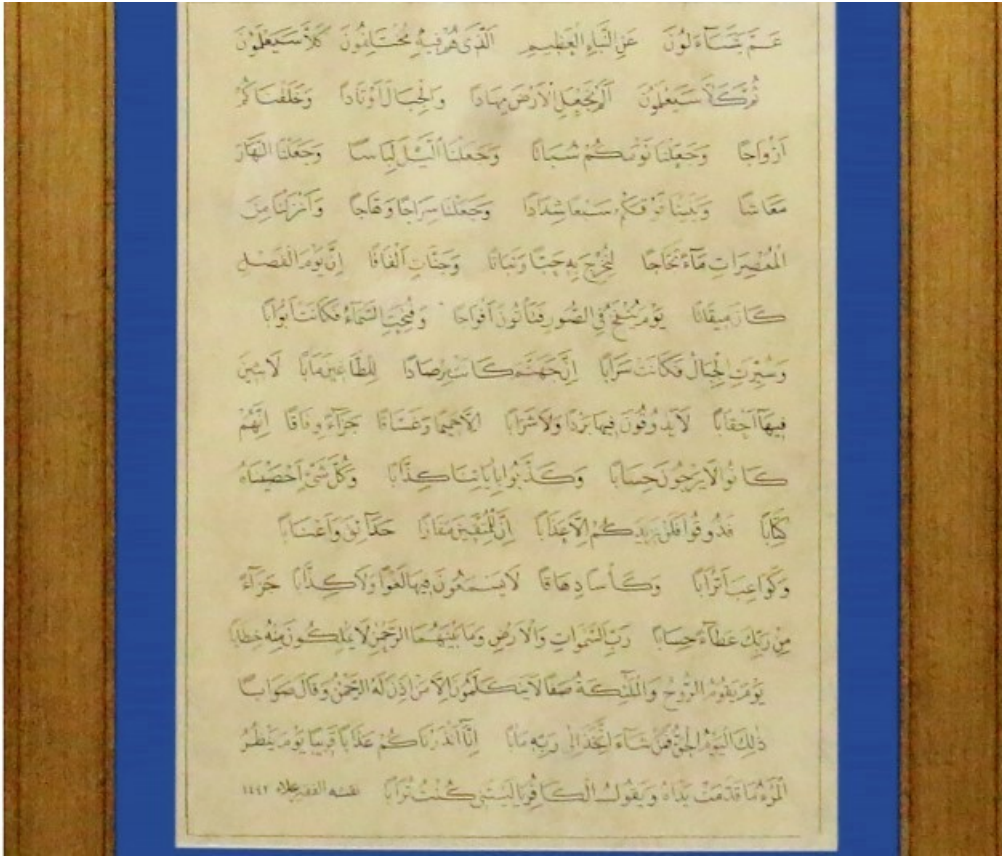 عَمَّ يَتَسَاۤءَلُونَ عَنِ النَّبَإِ الْعَظِيمِ اَلَّذِى هُمْ فِيهِ مُخْتَلِفُونَ كَلَّا سَيَعْلَمُونَ
ثُمَّ كَلَّا سَيَعْلَمُونَ اَلَمْ نَجْعَلِ الْاَرْضَ مِهَادًا وَالْجِبَالَ اَوْتَادًا وَخَلَقْنَاكُمْ
اَزْوَاجًا وَجَعَلْنَا نَوْمَكُمْ سُبَاتًا وَجَعَلْنَا الَّيْلَ لِبَاسًا وَجَعَلْنَا النَّهَارَ
مَعَاشًا وَبَنَيْنَا فَوْقَكُمْ سَبْعًا شِدَادًا وَجَعَلْنَا سِرَاجًا وَهَّاجًا وَاَنْزَلْنَا مِنَ
الْمُعْصِرَاتِ مَاۤءً ثَجَّاجًا لِنُخْرِجَ بِهِ حَبًّا وَنَبَاتًا وَجَنَّاتٍ اَلْفَافًا اِنَّ يَوْمَ الْفَصْلِ
كَانَ مِيقَاتًا يَوْمَ يُنْفَخُ فِى الصُّورِ فَتَأْتُونَ اَفْوَاجًا وَفُتِحَتِ السَّمَاۤءُ فَكَانَتْ اَبْوَابًا
وَسُيِّرَتِ الْجِبَالُ فَكَانَتْ سَرَابًا اِنَّ جَهَنَّمَ كَانَتْ مِرْصَادًا لِلطَّاغِينَ مَاٰبًا لَابِثِينَ
فِيهَاۤ اَحْقَابًا لَا يَذُوقُونَ فِيهَا بَرْدًا وَلَا شَرَابًا اِلَّا حَمِيمًا وَغَسَّاقًا جَزَاۤءً وِفَاقًا اِنَّهُمْ
كَانُوا لَا يَرْجُونَ حِسَابًا وَكَذَّبُوا بِاٰيَاتِنَا كِذَّابًا وَكُلَّ شَىْءٍ اَحْصَيْنَاهُ
كِتَابًا فَذُوقُوا فَلَنْ نَزِيدَكُمْ اِلَّا عَذَابًا اِنَّ لِلْمُتَّقِينَ مَفَازًا حَدَاۤئِقَ وَاَعْنَابًا
وَكَوَاعِبَ اَتْرَابًا وَكَأْسًا دِهَاقًا لَا يَسْمَعُونَ فِيهَا لَغْوًا وَلَا كِذَّابًا جَزَاۤءً
مِنْ رَبِّكَ عَطَاۤءً حِسَابًا رَبِّ السَّمٰوَاتِ وَالْاَرْضِ وَمَا بَيْنَهُمَا الرَّحْمٰنِ لَا يَمْلِكُونَ مِنْهُ خِطَابًا
يَوْمَ يَقُومُ الرُّوحُ وَالْمَلٰۤئِكَةُ صَفًّا لَا يَتَكَلَّمُونَ اِلَّا مَنْ اَذِنَ لَهُ الرَّحْمٰنُ وَقَالَ صَوَابًا
ذٰلِكَ الْيَوْمُ الْحَقُّ فَمَنْ شَاۤءَ اتَّخَذَ اِلٰى رَبِّهِ مَاٰبًا اِنَّاۤ اَنْذَرْنَاكُمْ عَذَابًا قَرِيبًا يَوْمَ يَنْظُرُ
الْمَرْءُ مَا قَدَّمَتْ يَدَاهُ وَيَقُولُ الْكَافِرُ يَا لَيْتَنِى كُنْتُ تُرَابًا الفقير ١٤٤٢